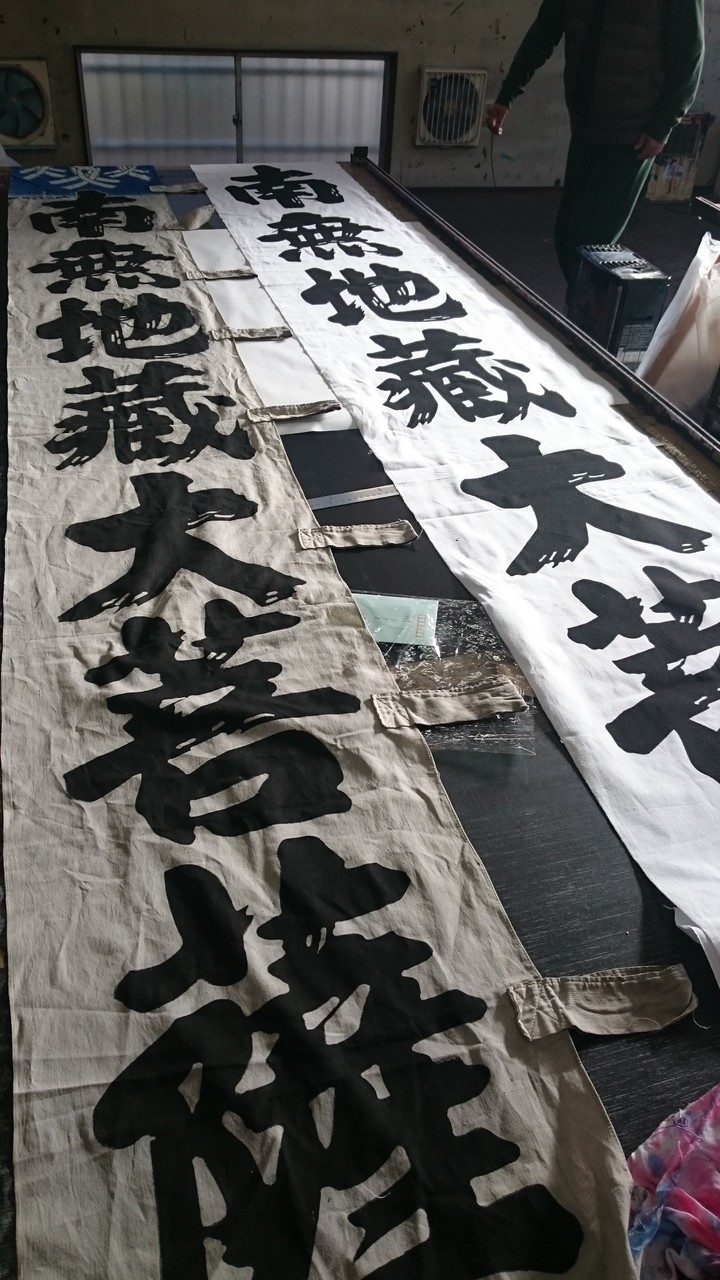 南無地藏大菩薩
南無地藏大菩